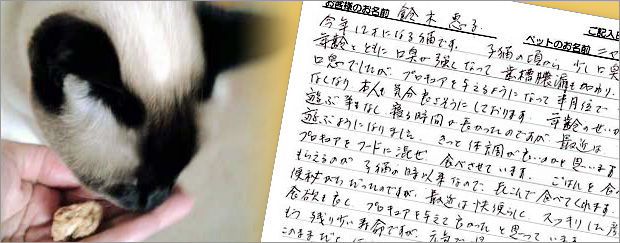 お客様のお名前 鈴木 恵子
ご記入日
ペットのお名前
今年12才になる猫です。 子猫の頃から、少し口臭
年齢とともに口臭が強くなって 歯槽膿漏もかかり
口臭でしたが、プロキュアを与えるようになって 半月位で
なくなり 本人も気分良さそうにしております。 年齢のせいか
遊ぶ事もなし、寝る時間が長かったのですが、最近は
遊ぶようになりました。 きっと体調が良いのかと思います
プロキュアをフードに混ぜ 食べさせています。 ごはんを
もらえるのが 子猫の時以来なので、 食べてくれます。
便秘がちだったのですが、最近は快便らしく、スッキリした
食欲も良し、プロキュアを与えて良かったと思っています。
もう残り少い寿命ですが、元気で
このままで